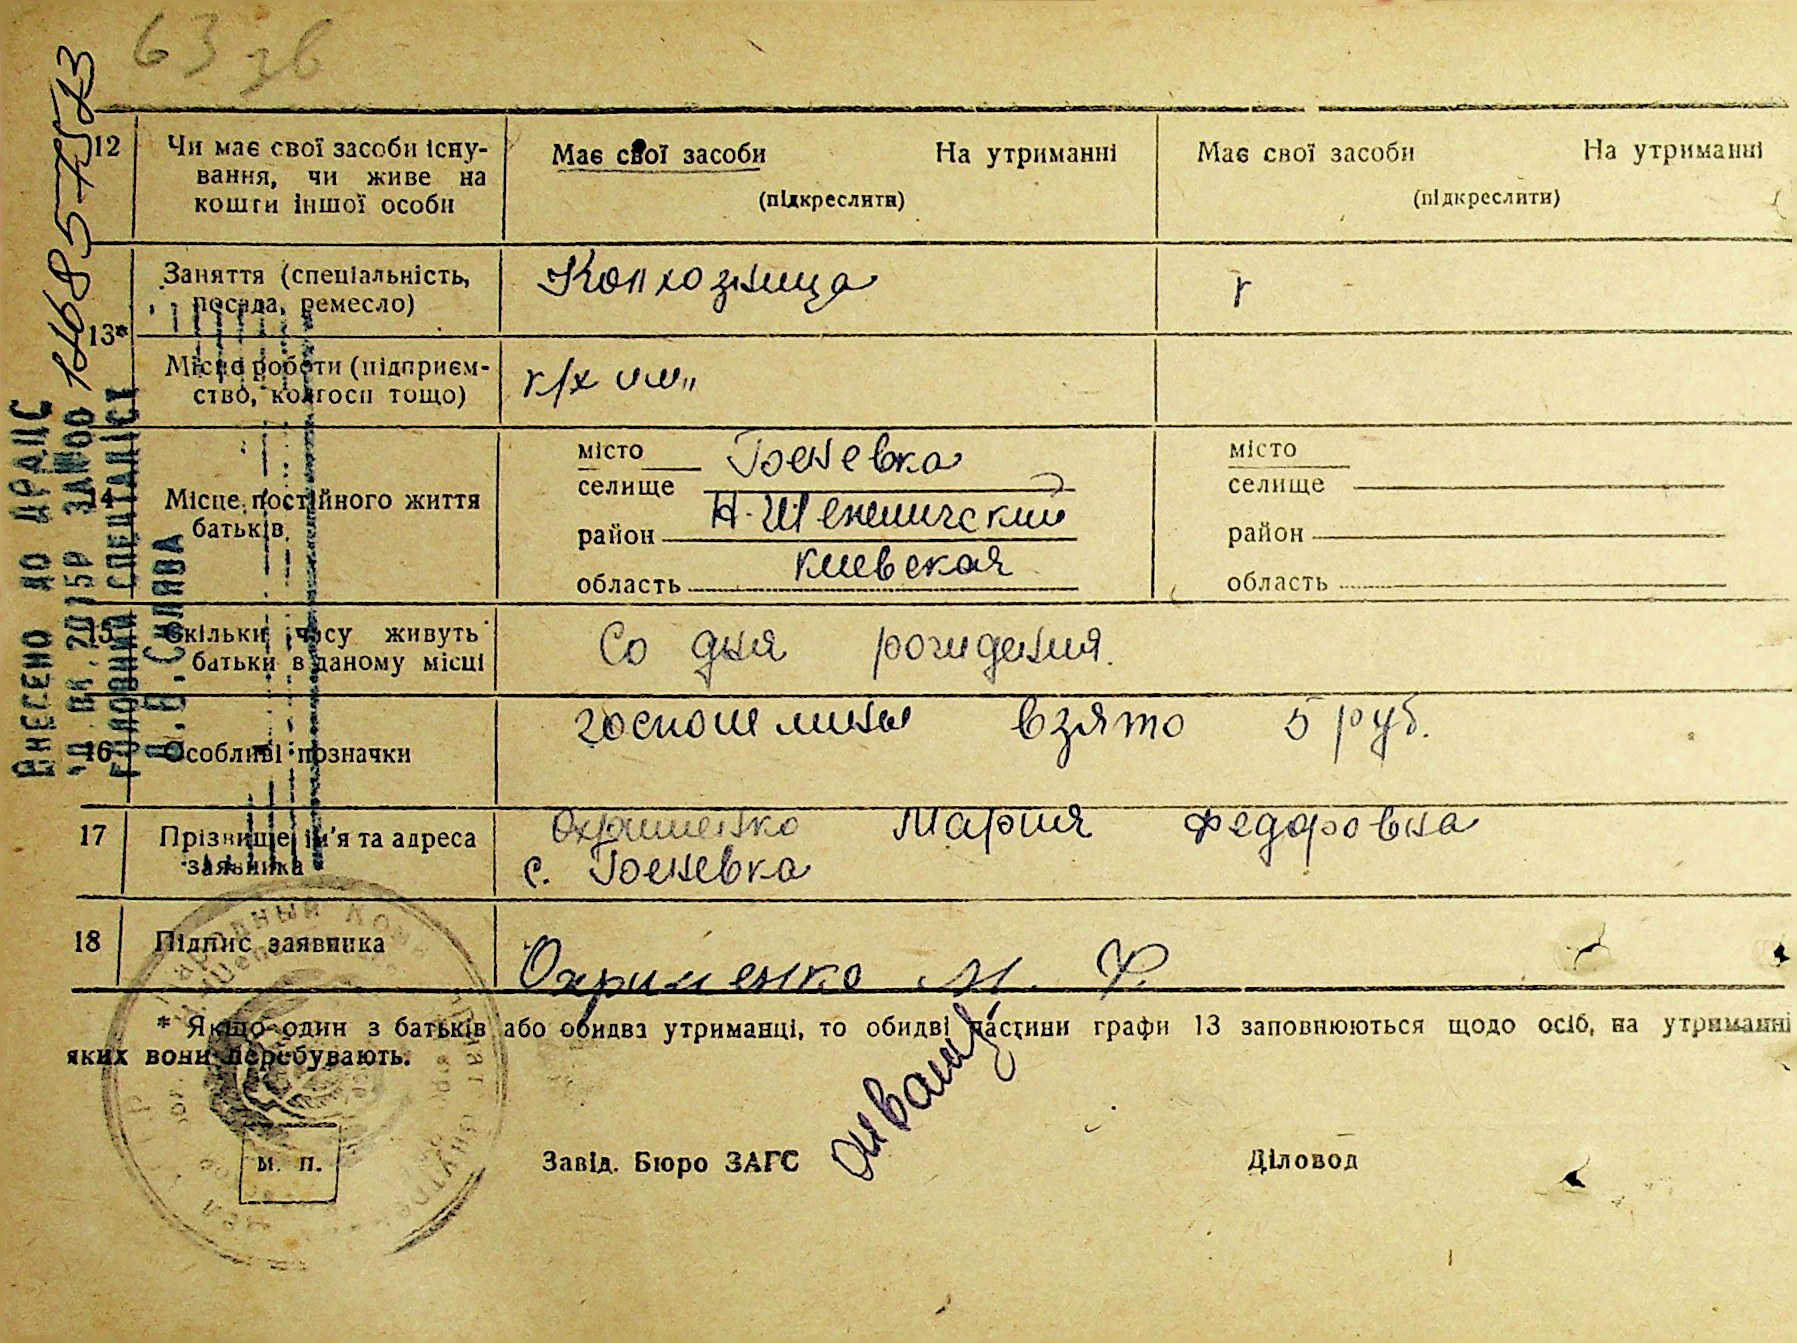 63 зв
12 Чи має свої засоби існу-
вання, чи живе на
кошти іншої особи
Має свої засоби На утриманні
(підкреслити)
Має свої засоби На утриманні
(підкреслити)
13*
Заняття (спеціальність,
посада, ремесло)
Колхозница
Місце роботи (підприєм-
ство, колгосп тощо)
к/х им.
14 Місце постійного життя
батьків
місто
селище
Гоженевка
район Н.-Шепетичский
область Киевская
місто
селище
район
область
15 Скільки часу живуть
батьки в даному місці
Со дня рождения.
16 Особливі позначки
госпошлины взято 5 руб.
17 Прізвище, ім'я та адреса
заявника
Охрименко Мария Федоровна
с.
18 Підпис заявника
Охрименко М. Ф.
* Якщо один з батьків або обидва утриманці, то обидві частини графи 13 заповнюються щодо осіб, на утриманні
яких вони перебувають.
М. П.
Завід. Бюро ЗАГС
Діловод
Внесено до ДРАЦС
2015р за №00
головний спеціаліст